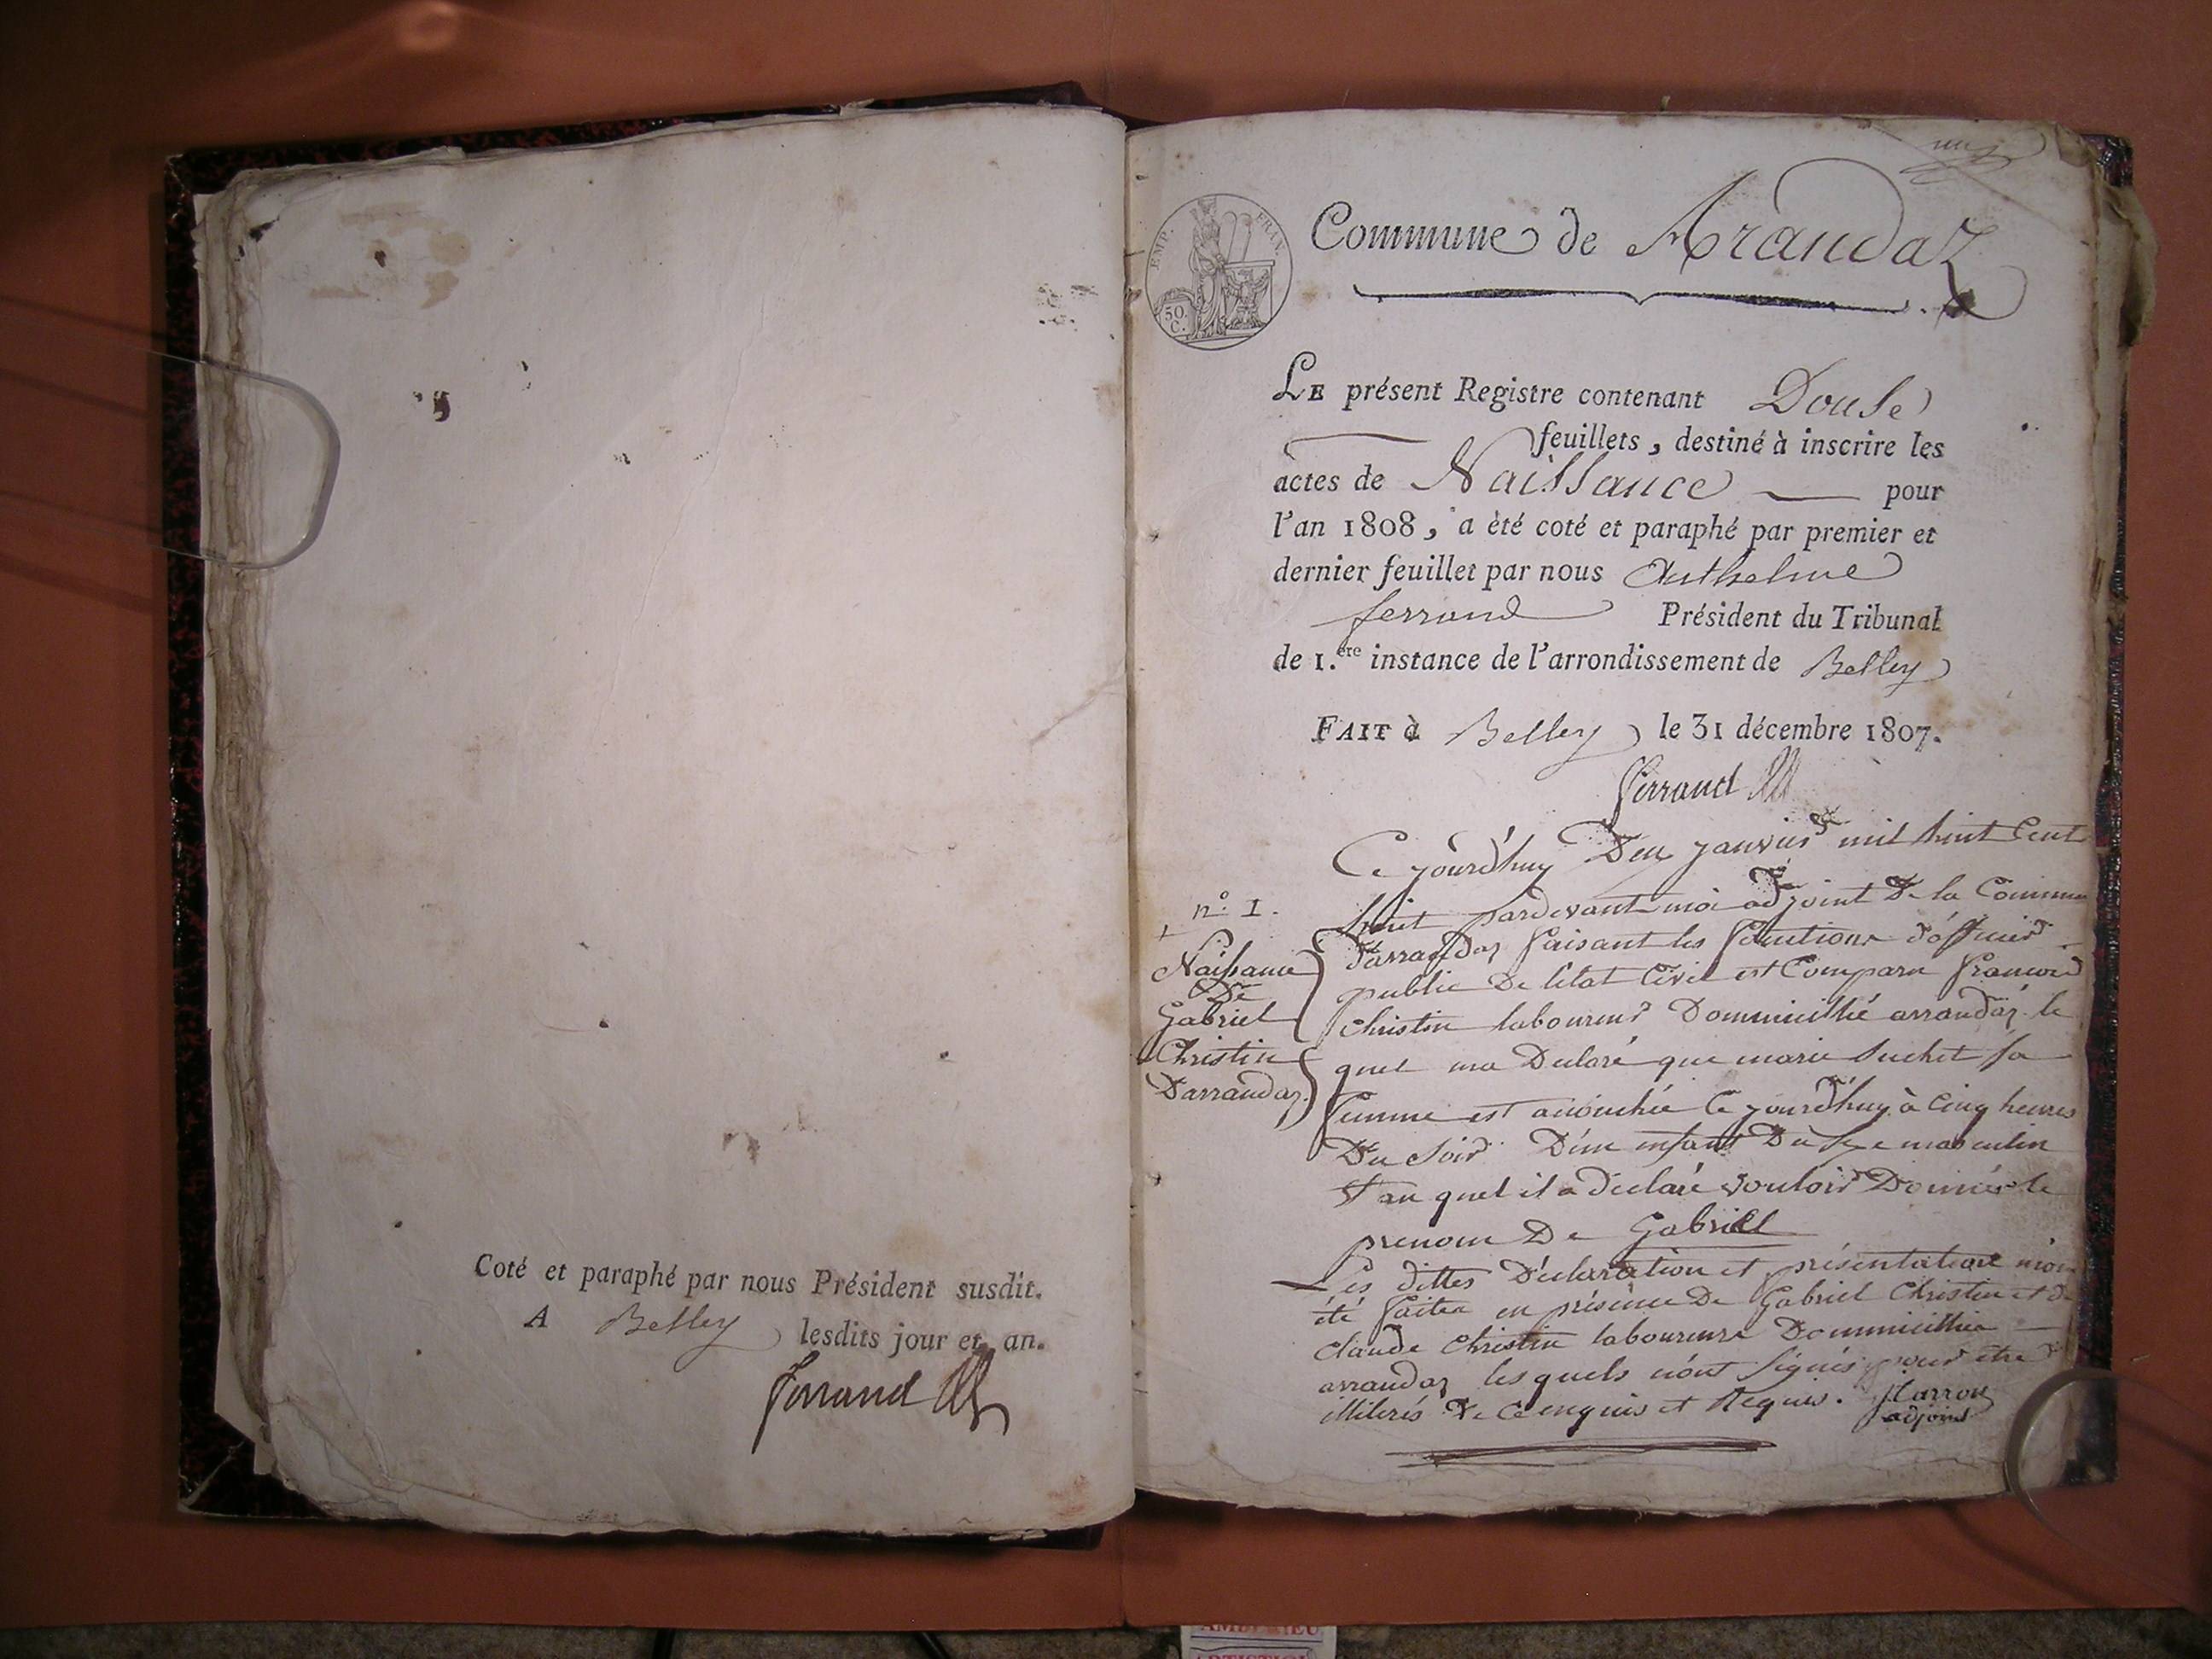 Coté et paraphé par nous Président susdit.
A Belley lesdits jour et an.
Ferrand
EMP. FRAN.
50.
C.
Commune de Arandaz
LE présent Registre contenant Douse
feuillets, destiné à inscrire les
actes de Naissance pour
l'an 1808, a èté coté et paraphé par premier et
dernier feuillet par nous Anthelme
ferrand Président du Tribunal
de 1.ère instance de l'arrondissement de Belley
FAIT à Belley le 31 décembre 1807.
ferrand
n.o 1.
Naissance
De
Gabriel
Christin
Darrandaz
Ce jourd'huy Deux janvier mil huit Cent
huit pardevant moi adjoint De la Commune
d'arrandaz faisant les fonctions d'officier
public De l'état Civil est Comparu francois
Christin laboureur Dommicillié arrandaz le
quel ma Déclaré que marie Suchet sa
femme est accouchée Ce jourd'huy à Cinq heures
Du Soir D'un enfant Du sexe masculin
et au quel il a déclaré vouloir Donner le
prenom De Gabriel
Les dittes Déclaration et présentation mon
été faites en présence De Gabriel Christin et de
claude Christin laboureurs Dommicilliés
arrandaz lesquels n'ont signés pour être
illiterés De Ce enquis et Requis. Jtarrou
adjoint